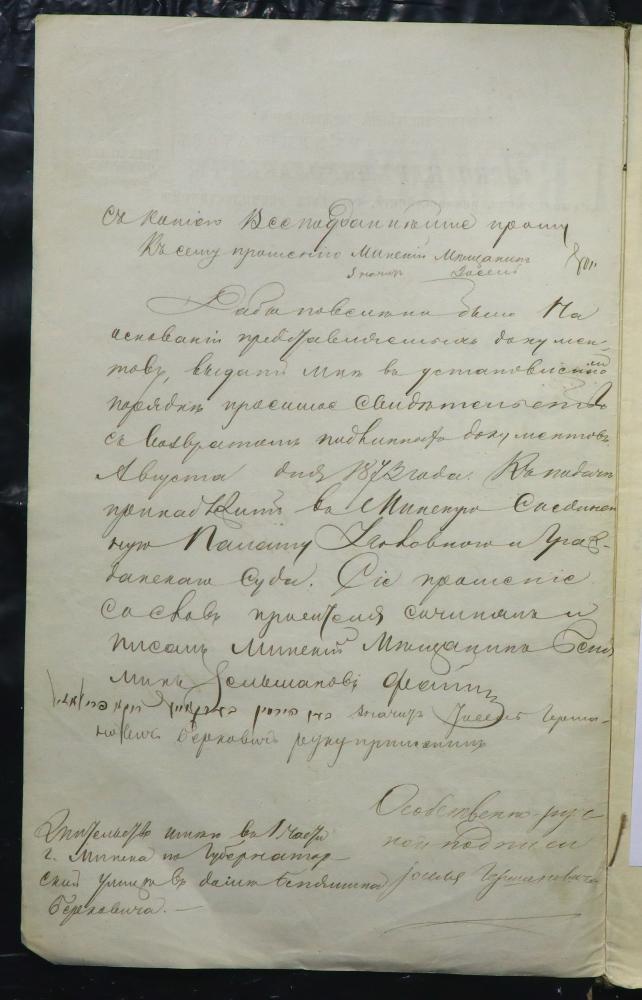 Съ копіею Всеподданнѣйше прошу
Къ сему прошенію Минскій Мѣщанинъ
значитъ Іосель
Дабы повелѣно было На
основаніи представляемыхъ докумен-
товъ, выдать мнѣ въ установленномъ
порядкѣ просимое свидѣтельство
съ возвратомъ подлинныхъ документовъ
Августа дня 1873 года. Къ подачѣ
принадлежитъ въ Минскую Соединен
ную Палату Уголовнаго и Граж-
данскаго Суда. Сіе прошеніе
со словъ просителя сочинялъ и
писалъ Минскій Мѣщанинъ Бенья
минъ
значитъ Іосель Герша-
новичъ Берковичъ руку приложилъ
Собственно-руч
ной подписи
Іоселя Гершановича
Жительство имѣю въ 1 части
г. Минска по Губернатор-
ской улицѣ въ домѣ Беньямина
Берковича. —